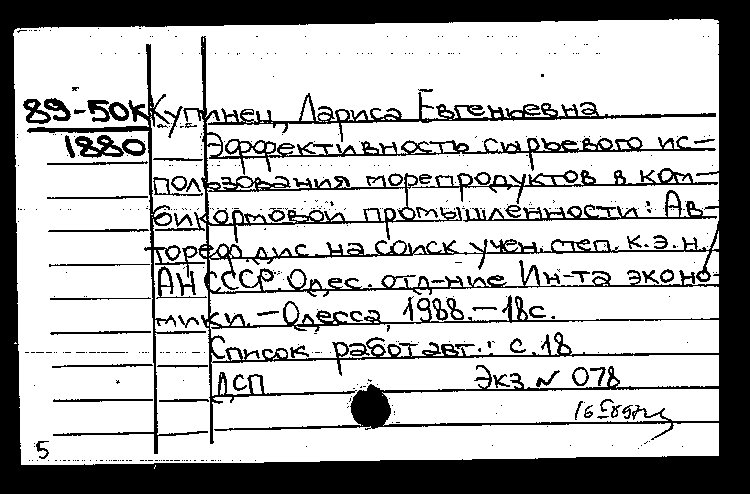 89-50К Купинец, Лариса Евгеньевна
1880 Эффективность сырьевого ис-
пользования морепродуктов в ком-
бикормовой промышленности: Ав-
тореф. дис. на соиск. учен. степ. к.э.н./
АН СССР. Одес. отд-ние Ин-та эконо-
мики. – Одесса, 1988. – 18с.
Список работ авт.: с. 18
ДСП Экз N 078
5